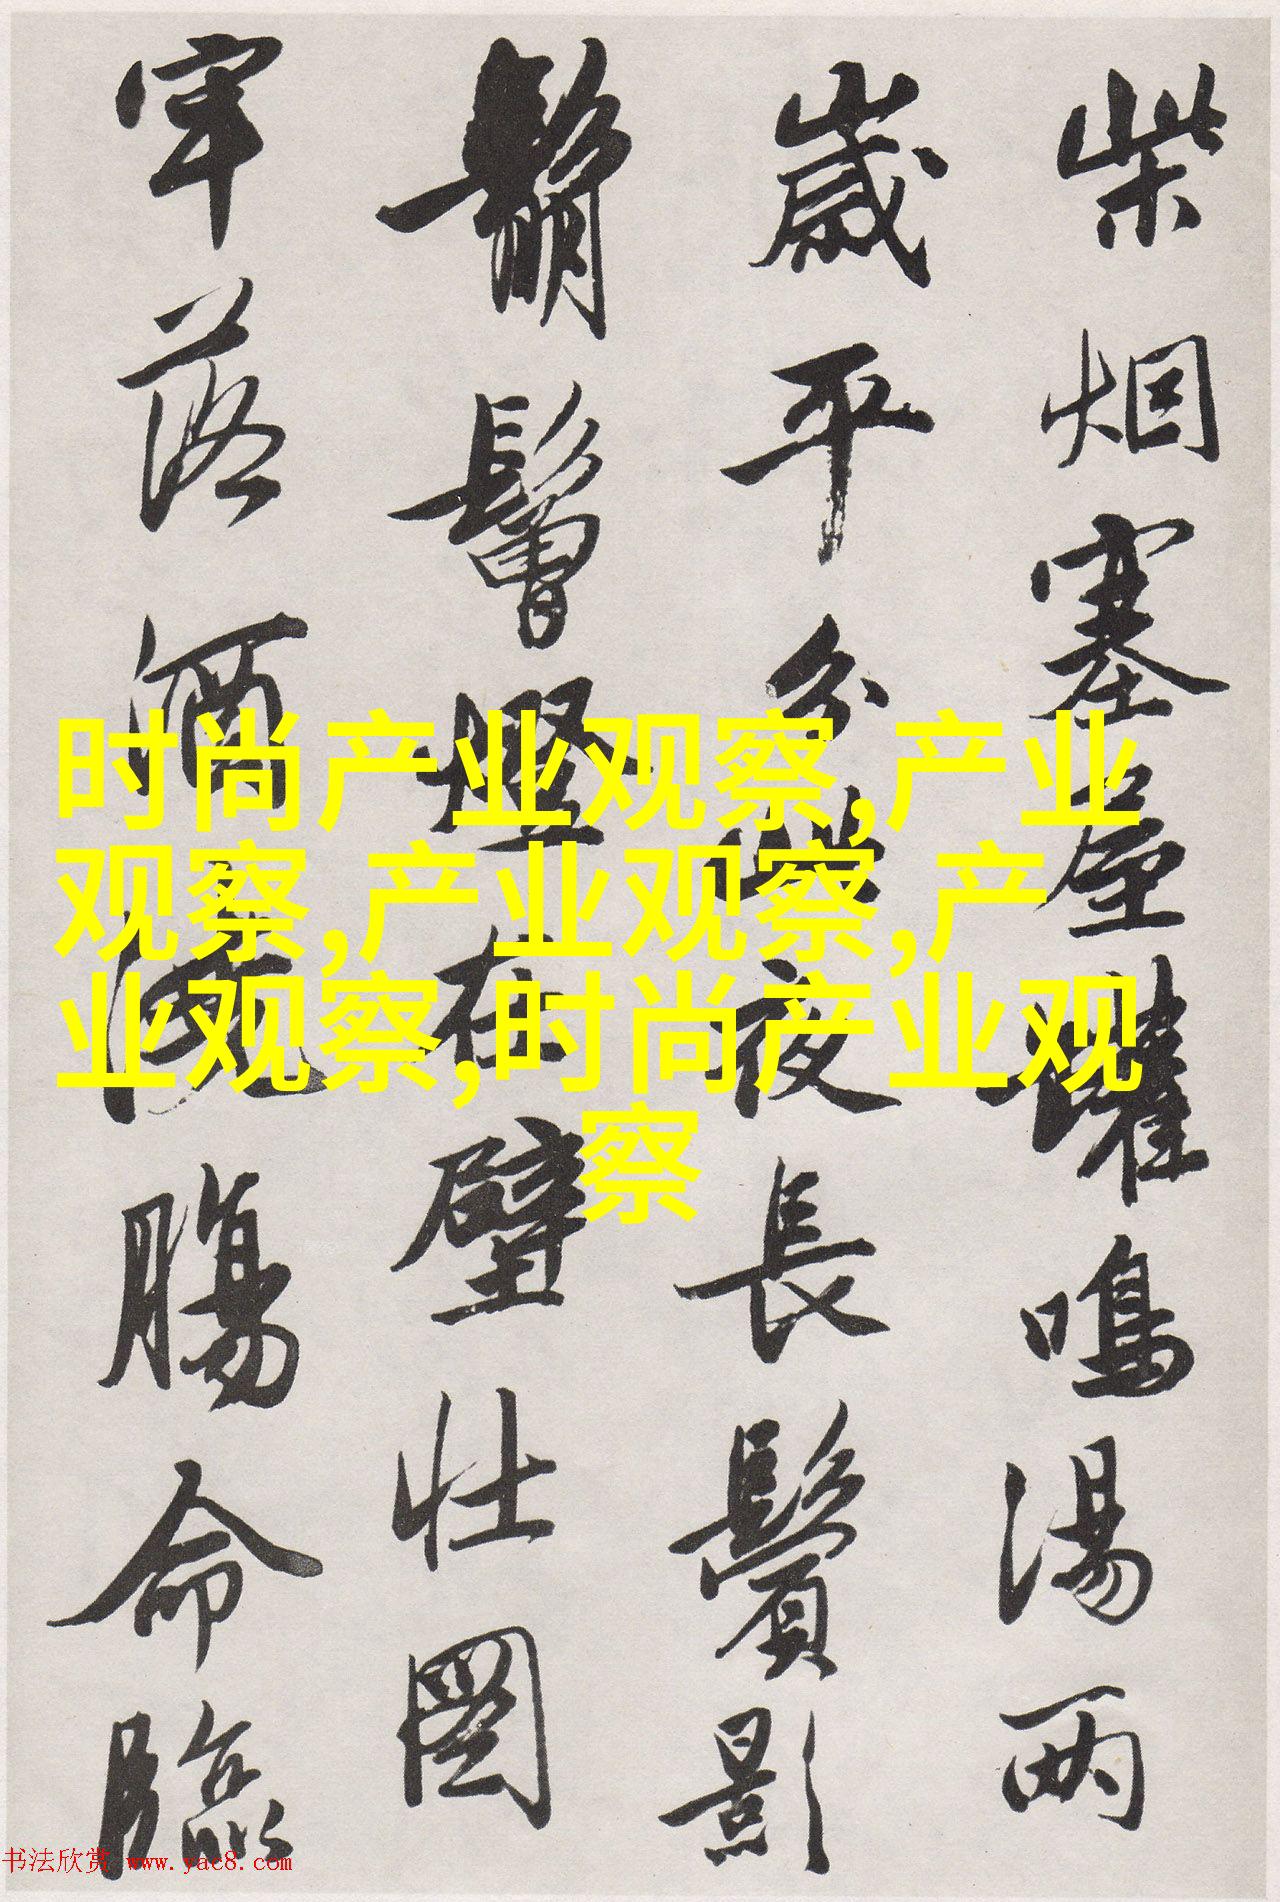 柴烟塞屋罐鳴湯两
歲平分此夜長鬢影
鬅鬙燈在壁壮圖
牢落酒澆腸命臨
时尚产业观察,产业
观察,产业观察,产
业观察,时尚产业观
察
书法欣赏 www.yac8.com